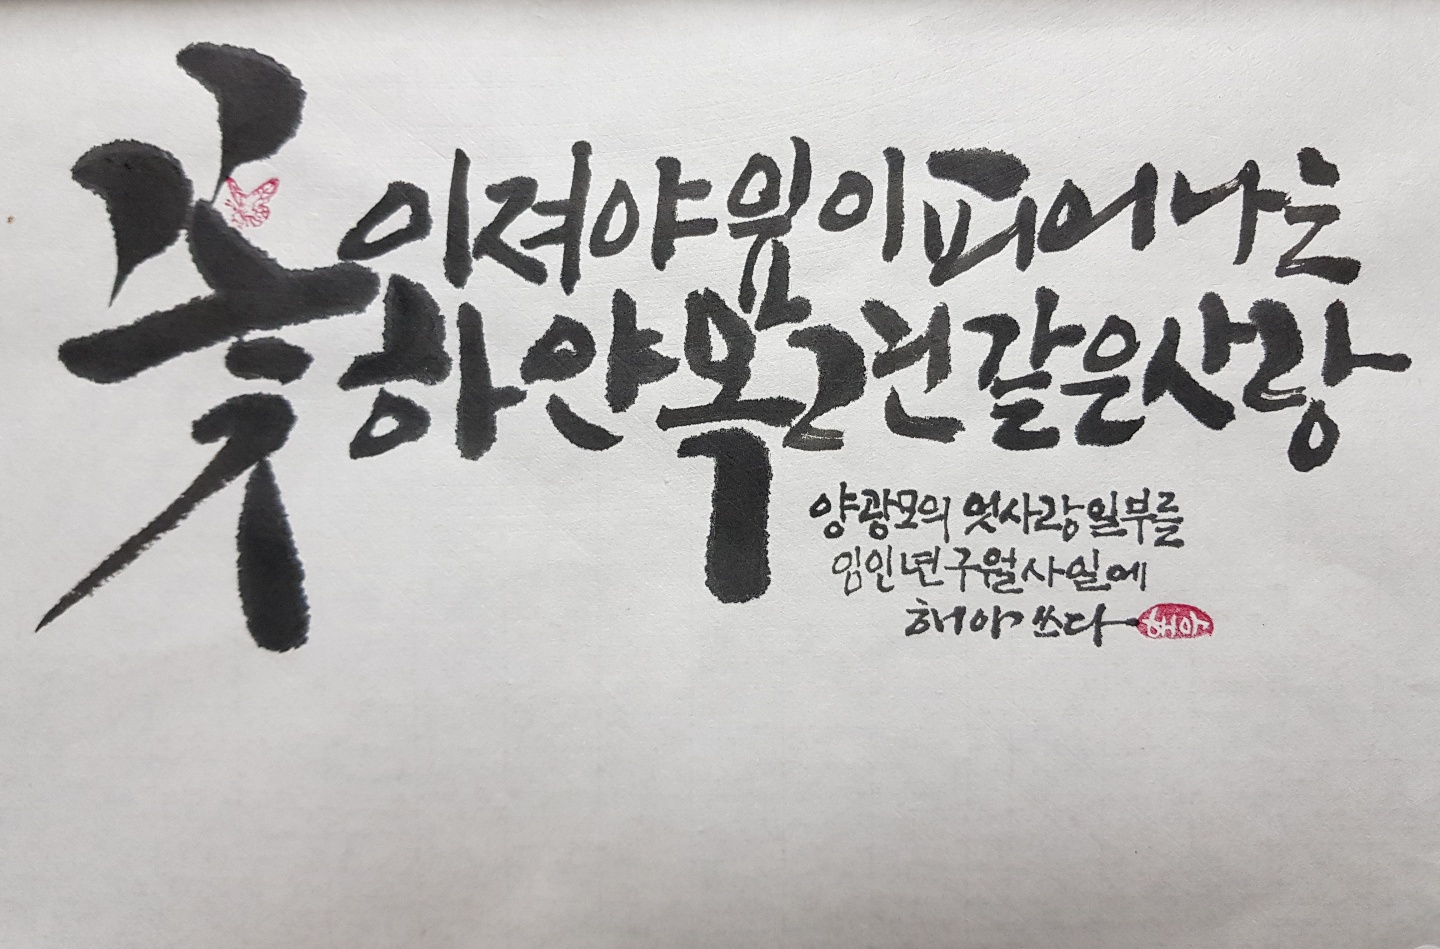 꽃이져야 잎이 피어나는
하얀 목련 같은 사랑
양광모의 엇사랑 일부를
임인년 구월 사일에
해야 쓰다
해야